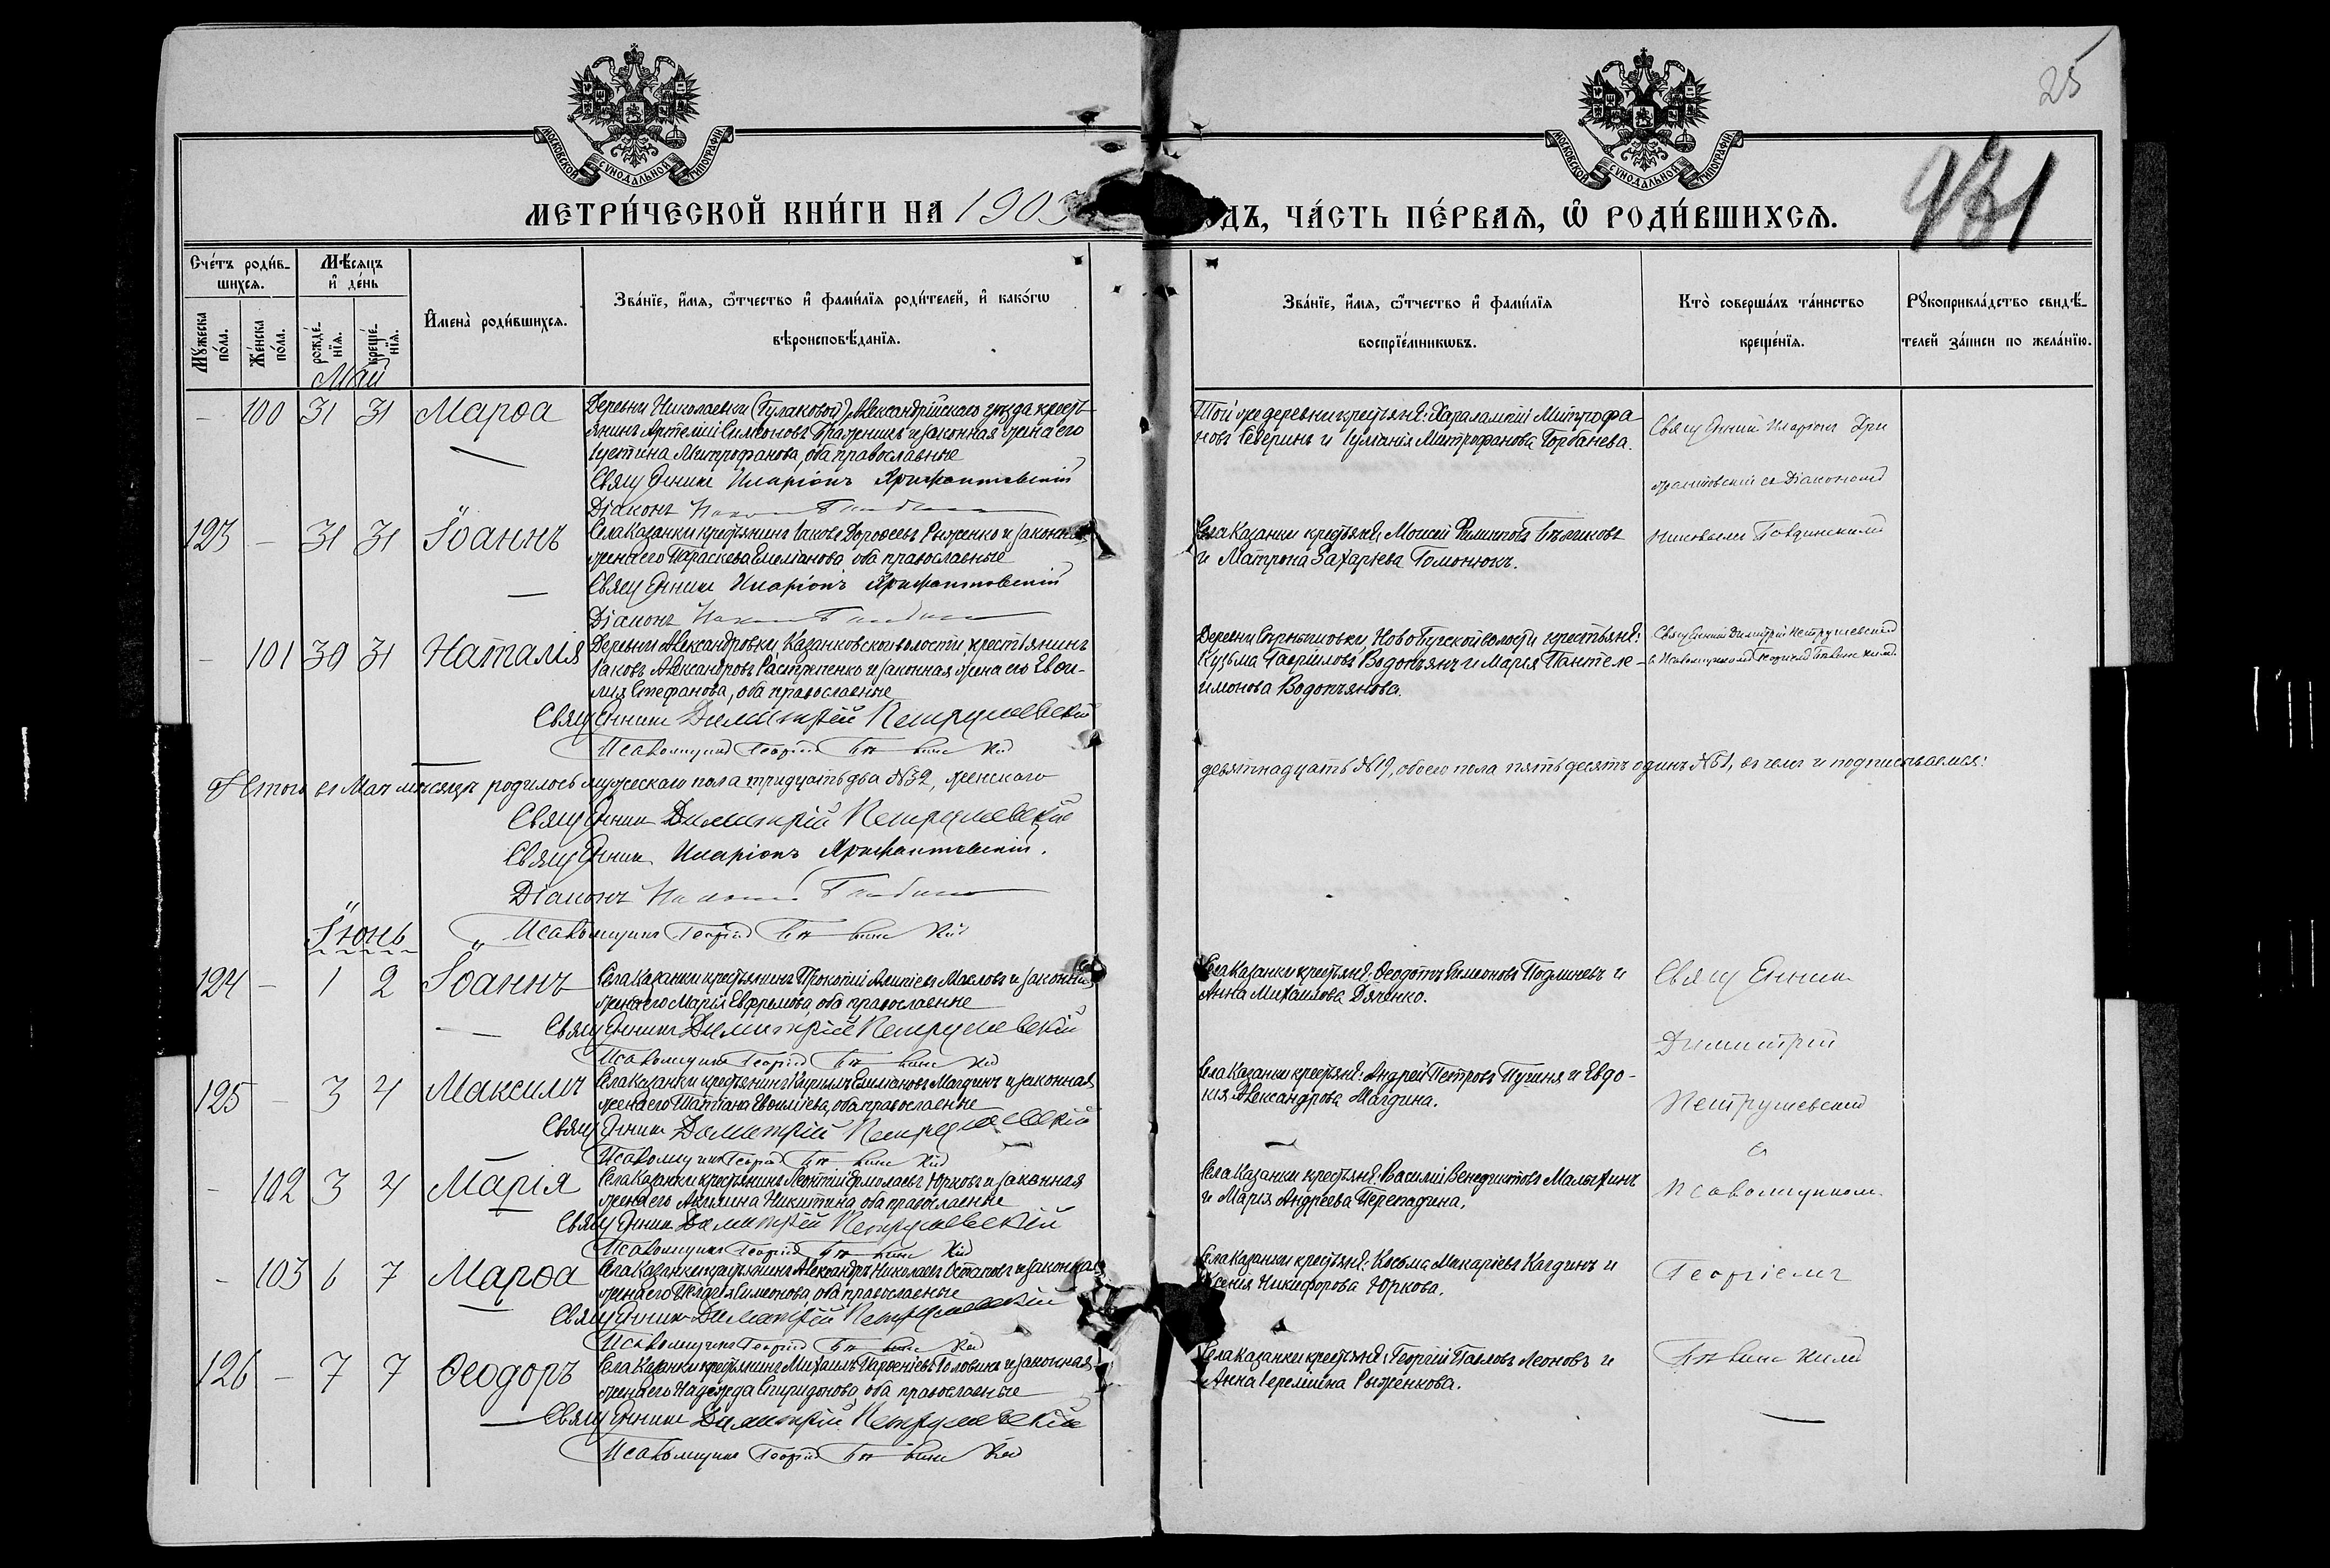 25
МОСКОВСКОЙ СѴНОДАЛЬНОЙ ТИПОГРАФІИ
МОСКОВСКОЙ СѴНОДАЛЬНОЙ ТИПОГРАФІИ
431
МЕТРИ́ЧЕСКОЙ КНИ́ГИ НА 1903
ОДЪ, ЧА́СТЬ ПЕ́РВАѦ, Ѽ РОДИ́ВШИХСѦ.
Сче́тъ роди́в-
шихсѧ.
Мѣ́сѧцъ
и҆ де́нь
Мꙋ́жеска
по́ла.
Же́нска
по́ла.
рожде́-
нїѧ.
креще́-
нїѧ.
И҆мена̀ роди́вшихсѧ.
Зва́нїе, и҆́мѧ, ѻ҆́тчество и҆ фами́лїѧ роди́телей, и҆ како́гѡ
вѣроисповѣ́данїѧ.
Зва́нїе, и҆́мѧ, ѻ҆́тчество и҆ фами́лїѧ
воспрїе́мникѡвъ.
Кто̀ соверша́лъ та́инство
креще́нїѧ.
Рꙋкоприкла́дство свидѣ́-
телей за́писи по жела́нїю.
Май
- 100 31 31 Марѳа
Деревни Николаевки (Гулаковой) Александрійскаго уѣзда кресть-
янинъ Артемій Симеоновъ Браженикъ и законная жена его
Іустина Митрофанова, оба православные
Священникъ Иларіонъ Хрисантовскій
Діаконъ
Той же деревни крестьяне: Харалампій Митрофа-
новъ Северинъ и Іуліанія Митрофанова Горбанева.
Священникъ Иларіонъ Хри
сантовскій съ Діакономъ
123 - 31 31 Іоаннъ
Села Казанки крестьянинъ Іаковъ Дороѳеевъ Рыженко и законная
жена его Параскева Емеліанова оба православные
Священникъ Иларіонъ Хрисантовскій
Діаконъ
Села Казанки крестьяне: Моисей Филиповъ Бѣликовъ
и Матрона Захаріева Гомонюкъ.
- 101 30 31 Наталія
Деревни Александровки, Казанковской волости, крестьянинъ
Іаковъ Александровъ Растрепенко и законная жена его Евѳи-
мія Стефанова, оба православные
Священникъ Димитрій Петрушевскій
Псаломщикъ Георгій
Деревни Скрыпиовки, Ново Бугской волости крестьяне:
Кузьма Гавріиловъ Водопьянъ и Марія Пантеле-
имонова Водопьянова.
Священникъ Димитрій Петрушевскій
съ Псаломщикомъ Георгіемъ
Итого въ Маѣ мѣсяцѣ родилось мужескаго пола тридцать два №32, женскаго
девятнадцать №19, обоего пола пятьдесятъ одинъ №51, въ чемъ и подписываемся:
Священникъ Димитрій Петрушевскій
Священникъ Иларіонъ Хрисантовскій.
Діаконъ
Псаломщикъ Георгій
Іюнь
124 - 1 2 Іоаннъ
Села Казанки крестьянинъ Прокопій Алипіевъ Масловъ и законная
жена его Марія Ефремова, оба православные
Священникъ Димитрій Петрушевскій
Псаломщикъ Георгій
Села Казанки крестьяне: Ѳеодотъ Симеоновъ Подлиневъ и
Анна Михаилова Дяченко.
Священникъ
Димитрій
125 - 3 4 Максимъ
Села Казанки крестьянинъ Кириллъ Емиліановъ Магдинъ и законная
жена его Татіана Евѳиміева, оба православные
Священникъ Димитрій Петрушевскій
Псаломщикъ Георгій
Села Казанки крестьяне: Андрей Петровъ Пугиня и Евдо-
кія Александрова Магдина.
Петрушевскій
съ
- 102 3 4 Марія
Села Казанки крестьянинъ Леонтій Ермолаевъ Юрковъ и законная
жена его Акилина Никитина, оба православные
Священникъ Димитрій Петрушевскій
Псаломщикъ Георгій
Села Казанки крестьяне: Василій Венедиктовъ Малыхинъ
и Марія Андреева Перепадина.
Псаломщикомъ
- 103 6 7 Марѳа
Села Казанки крестьянинъ Александръ Николаевъ Остаповъ и законная
жена его Пелагія Симеонова, оба православные
Священникъ Димитрій Петрушевскій
Псаломщикъ Георгій
Села Казанки крестьяне: Косьма Макаріевъ Кагдинъ и
Ксенія Никифорова Юркова.
Георгіемъ
126 - 7 7 Ѳеодоръ
Села Казанки крестьянинъ Михаилъ Парѳеніевъ Головинъ и законная
жена его Надежда Спиридонова, оба православные
Священникъ Димитрій Петрушевскій
Псаломщикъ Георгій
Села Казанки крестьяне: Георгій Павловъ Леоновъ и
Анна Іереміина Рыженкова.